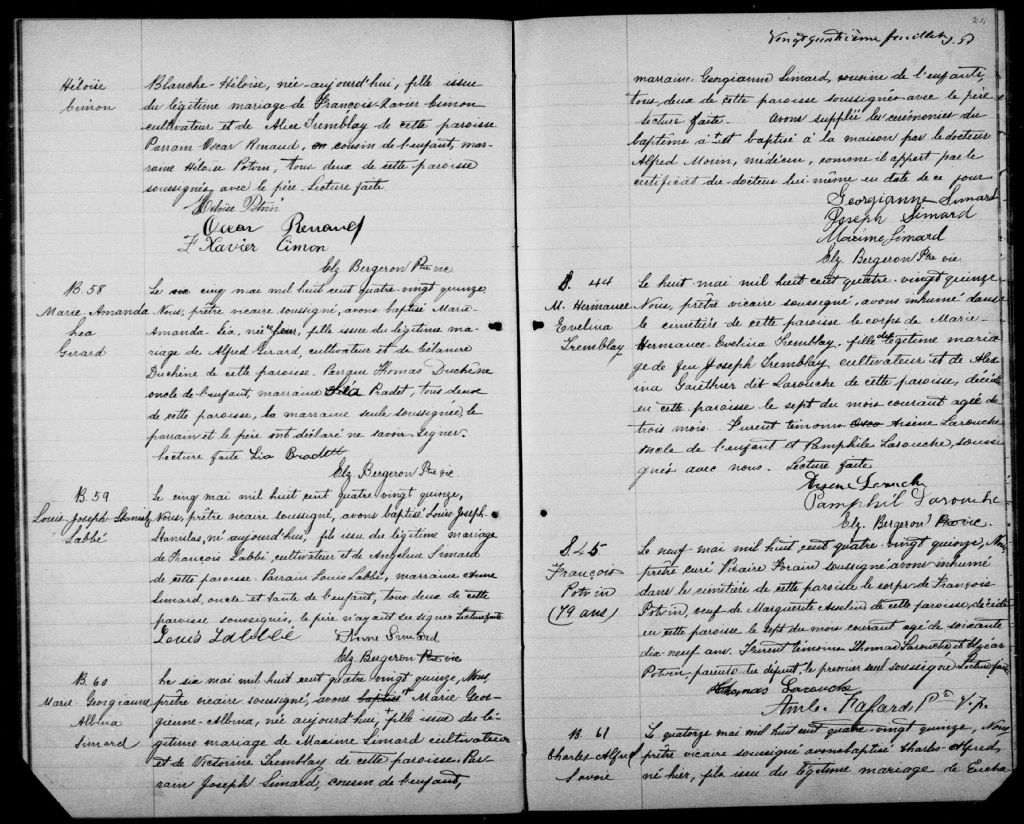 Héloïse
Cimon
Blanche-Héloise, née aujourd'hui, fille issue
du légitime mariage de François-Xavier Cimon
cultivateur et de Alice Tremblay de cette paroisse.
Parrain Oscar Renaud, cousin de l'enfant, mar-
raine Héloise Potvin, tous deux de cette paroisse
soussignés avec le père. Lecture faite.
Héloïse Potvin
Oscar Renaud
F Xavier Cimon
Elz Bergeron Ptre vic
B. 58
Marie Amanda
Lea
Girard
Le cinq mai mil huit cent quatre vingt quinze
Nous, prêtre vicaire soussigné, avons baptisé Marie-
Amanda-Léa, née jour, fille issue du légitime ma-
riage de Alfred Girard, cultivateur et de Célanire
Duchêne de cette paroisse. Thomas Duchêne
oncle de l'enfant, marraine Léa Pradet, tous deux
de cette paroisse, la marraine seule soussignée, le
parrain et le père ont déclaré ne savoir signer.
Lecture faite Lia Bradett
Elz Bergeron Ptre vic
B. 59
Louis Joseph Stanislas
Labbé
Le cinq mai mil huit cent quatre vingt quinze,
Nous, prêtre vicaire soussigné, avons baptisé Louis-Joseph-
Stanislas, né aujourd'hui, fils issu du légitime mariage
de François Labbé, cultivateur et de Angelina Simard
de cette paroisse. Parrain Louis Labbé, marraine Anne
Simard, oncle et tante de l'enfant, tous deux de cette
paroisse soussignés, le père n'ayant su signer Lecture faite
Louis Labbé Anne Simard
Elz Bergeron Ptre vic
B. 60
Marie Georgianne
Albina
Simard
Le six mai mil huit cent quatre vingt quinze, Nous
prêtre vicaire soussigné, avons baptisé Marie Geor-
gienne-Albina, née aujourd'hui, fille issue du lé-
gitime mariage de Maxime Simard cultivateur
et de Victorine Tremblay de cette paroisse. Par-
rain Joseph Simard, cousin de l'enfant,
24
Vingt quatrième feuillet
marraine Georgianne Simard, cousine de l'enfant,
tous deux de cette paroisse soussignés avec le père
lecture faite. Avons suppléé les cérémonies du
baptême à baptisé à la maison par le docteur
Alfred Morin, médecin, comme il appert par le
certificat du docteur lui même en date de ce jour
Georgianne Simard
Joseph Simard
Maxime Simard
Elz. Bergeron Ptre vic
S. 44
M. Hermance
Evelina
Tremblay
Le huit mai mil huit cent quatre-vingt quinze
Nous, prêtre vicaire soussigné, avons inhumé dans
le cimetière de cette paroisse le corps de Marie-
Hermance-Evelina Tremblay, fille du légitime maria
ge de feu Joseph Tremblay cultivateur et de Alex
ina Gauthier dit Larouche de cette paroisse, décédée
en cette paroisse le sept du mois courant agée de
trois mois. Furent témoins Arsène Larouche
oncle de l'enfant et Pamphile Larouche, sous-
gnés avec nous. Lecture faite
Arsène Larouche
Pamphil Larouche
Elz. Bergeron Ptre vic.
S. 45
François
Potvin
(79 ans)
Le neuf mai mil huit cent quatre vingt quinze, Nous
prêtre curé Vicaire Forain soussigné avons inhumé
dans le cimetière de cette paroisse le corps de François
Potvin, veuf de Marguerite Asselin de cette paroisse, décédé
en cette paroisse le sept du mois courant agé de soixante
dix neuf ans. Furent témoins Thomas Larouche et Elzéar
Potvin parents du défunt, le premier seul soussigné Lecture faite
Thomas Larouche
Amb. Fafard Ptre V. F.
B. 61
Charles Alfred
Savoie
Le quatorze mai mil huit cent quatre-vingt quinze, Nous
prêtre vicaire soussigné avons baptisé Charles-Alfred,
né hier, fils issu du légitime mariage de Eucha